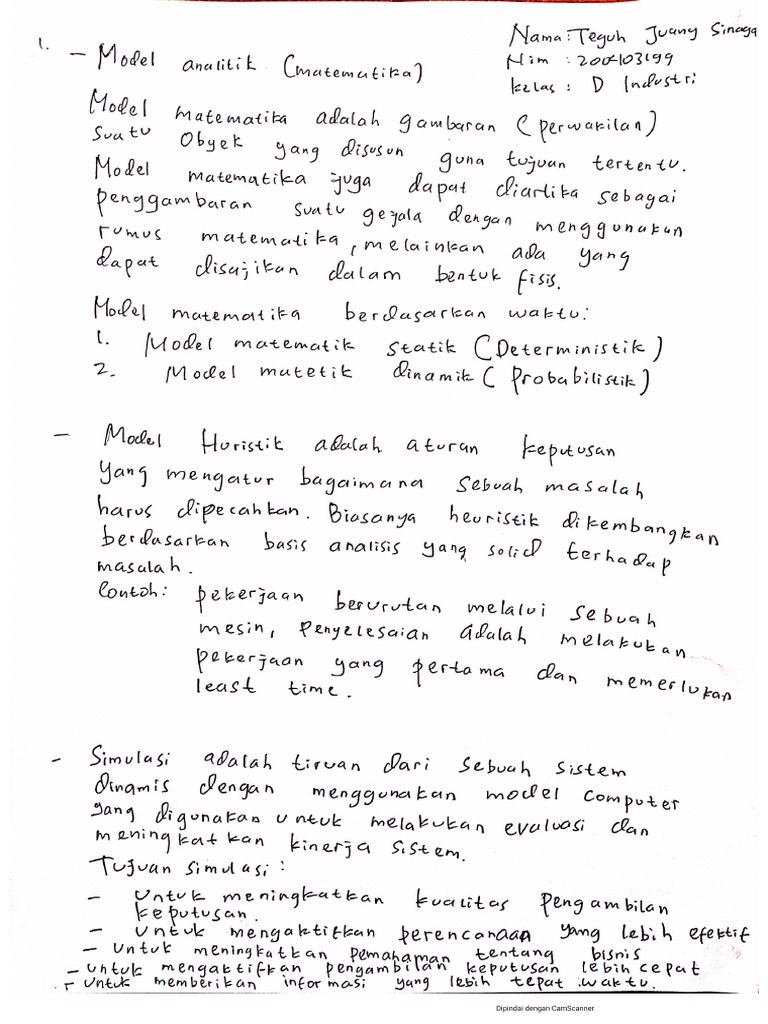 Nama: Teguh Juang Sinaga
Nim : 200403099
kelas : D Industri
1. - Model analitik (matematika)
Model matematika adalah gambaran (perwakilan)
suatu Obyek yang disusun guna tujuan tertentu.
Model matematika juga dapat diartika sebagai
penggambaran suatu gejala dengan menggunakan
rumus matematika, melainkan ada yang
dapat disajikan dalam bentuk fisis.
Model matematika berdasarkan waktu:
1. Model matematik statik (Deterministik)
2. Model matetik dinamik (Probabilistik)
- Model Huristik adalah aturan keputusan
yang mengatur bagaimana sebuah masalah
harus dipecahkan. Biasanya heuristik dikembangkan
berdasarkan basis analisis yang solid terhadap
masalah.
Contoh: pekerjaan berurutan melalui sebuah
mesin, Penyelesaian adalah melakukan
pekerjaan yang pertama dan memerlukan
least time.
- Simulasi adalah tiruan dari sebuah sistem
dinamis dengan menggunakan model computer
yang digunakan untuk melakukan evaluasi dan
meningkatkan kinerja sistem.
Tujuan simulasi :
- untuk meningkatkan kualitas pengambilan
keputusan.
- untuk mengaktifkan perencanaan yang lebih efektif
- untuk meningkatkan pemahaman tentang bisnis
- untuk mengaktifkan pengambilan keputusan lebih cepat
- untuk memberikan informasi yang lebih tepat waktu.
Dipindai dengan CamScanner